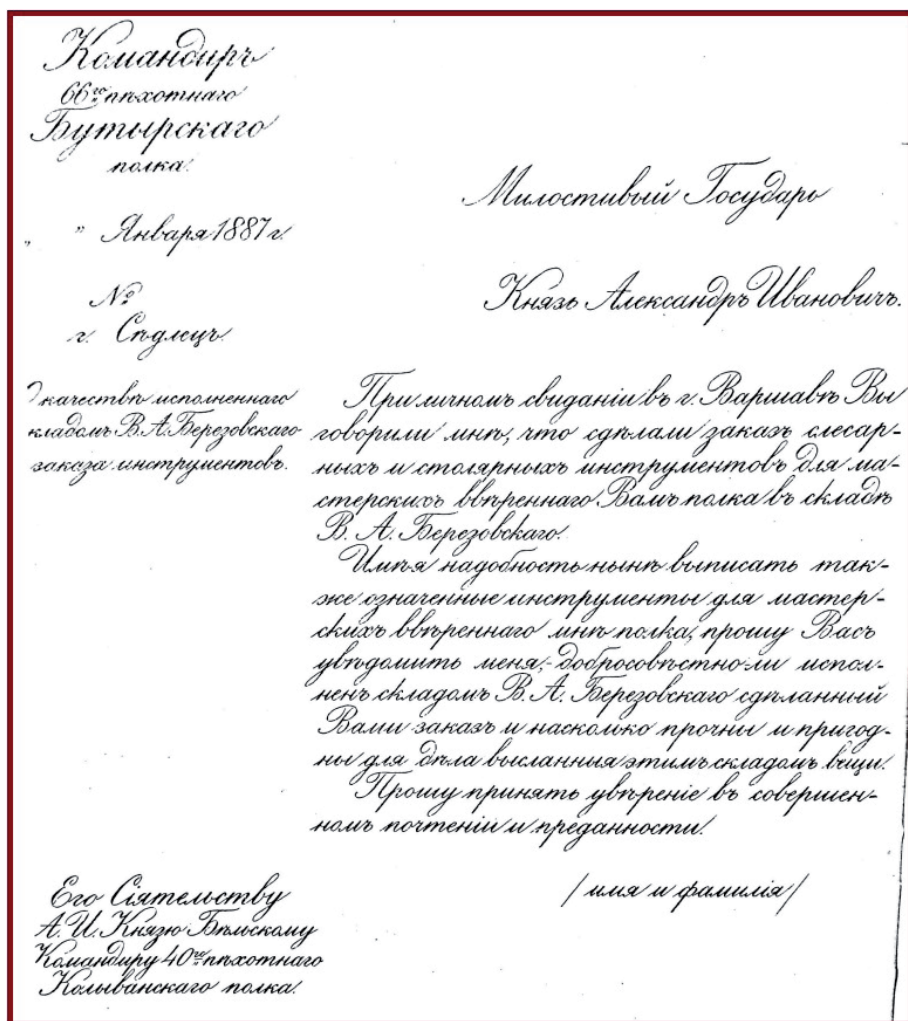 Командиръ
66го пѣхотнаго
Бутырскаго
полка.
„ ” Января 1887 г.
№
г. Сѣдлецъ.
качествѣ исполненнаго
кладомъ В. А. Березовскаго
заказа инструментовъ.
Милостивый Государь
Князь Александръ Ивановичъ.
При личномъ свиданіи въ г. Варшавѣ Вы
говорили мнѣ, что сдѣлали заказъ слесар-
ныхъ и столярныхъ инструментовъ для ма-
стерскихъ ввѣреннаго Вамъ полка въ складѣ
В. А. Березовскаго.
Имѣя надобность нынѣ выписать так-
же означенные инструменты для мастер-
скихъ ввѣреннаго мнѣ полка, прошу Васъ
увѣдомить меня,- добросовѣстно-ли испол-
ненъ складомъ В. А. Березовскаго сдѣланный
Вами заказъ и насколько прочны и пригод-
ны для дѣла высланныя этимъ складомъ вещи.
Прошу принять увѣреніе въ совершен-
номъ почтеніи и преданности.
/ имя и фамилія /
Его Сіятельству
А. И. Князю Бѣльскому
Командиру 40го пѣхотнаго
Колыванскаго полка.